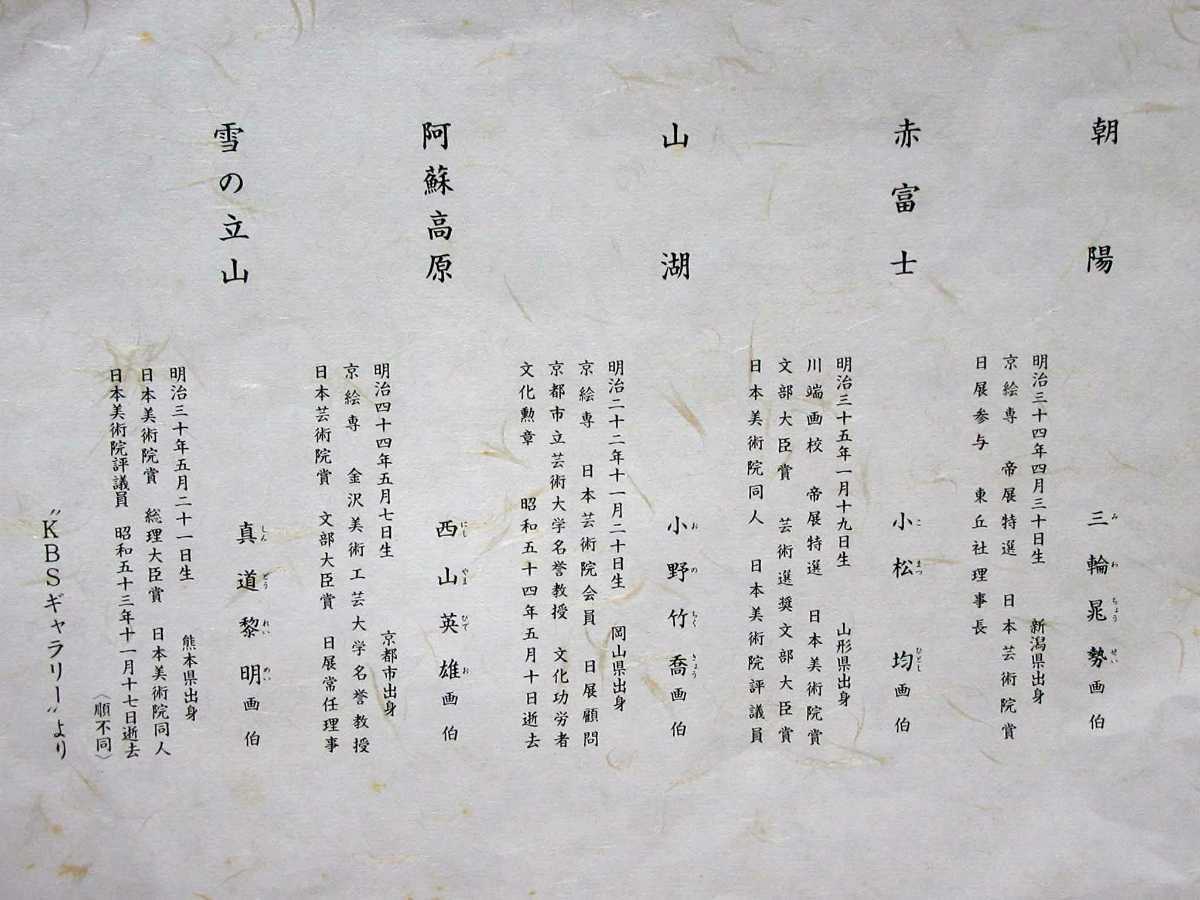 朝陽
三輪晁勢画伯
みわちょうせい
明治三十四年四月三十日生 新潟県出身
京絵専 帝展特選 日本芸術院賞
日展参与 東丘社理事長
赤富士
小松 均画伯
こまつ ひとし
明治三十五年一月十九日生 山形県出身
川端画校 帝展特選 日本美術院賞
文部大臣賞 芸術選奨文部大臣賞
日本美術院同人 日本美術院評議員
山湖
小野竹喬画伯
おのちくきょう
明治二十二年十一月二十日生 岡山県出身
京絵専 日本芸術院会員 日展顧問
京都市立芸術大学名誉教授 文化功労者
文化勲章 昭和五十四年五月十日逝去
阿蘇高原
西山英雄画伯
にしやまひでお
明治四十四年五月七日生 京都市出身
京絵専 金沢美術工芸大学名誉教授
日本芸術院賞 文部大臣賞 日展常任理事
雪の立山
真道黎明画伯
しんどうれいめい
明治三十年五月二十一日生 熊本県出身
日本美術院賞 総理大臣賞 日本美術院同人
日本美術院評議員 昭和五十三年十一月十七日逝去
(順不同)
〝KBSギャラリー〟より